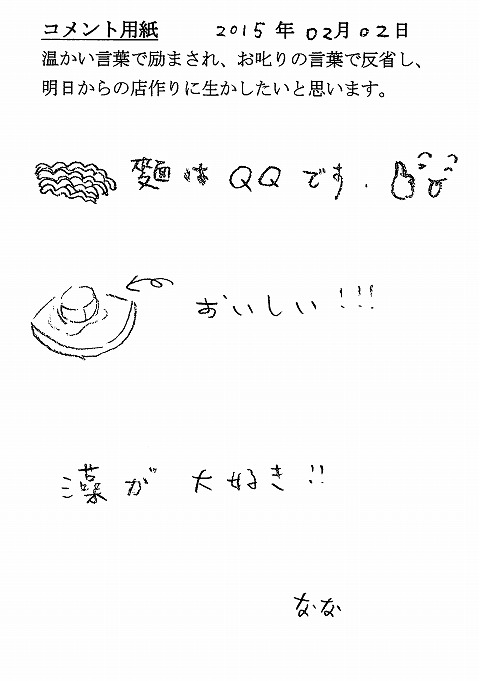 コメント用紙 2015年02月02日
温かい言葉で励まされ、お叱りの言葉で反省し、
明日からの店作りに生かしたいと思います。
麺は QQ です.
おいしい!!!
藻が 大好き!!
なな